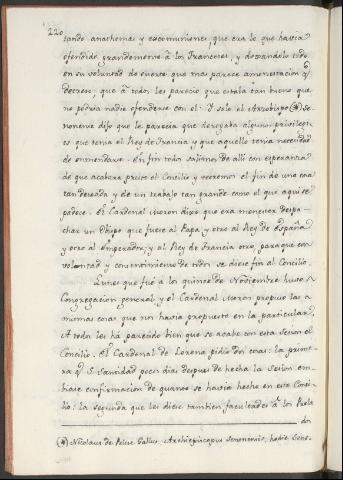 220
tando anathemas y excomuniones, que era lo que havia
ofendido grandemente à los Franceses, y dexandolo todo
en su voluntad de suerte que mas parece amonestacion q̃
decreto; que à todos les parecio que estaba tan bueno que
no podria nadie ofenderse con el. Y solo el Arzobispo (*) Se-
nonense dijo que le parecia que derogaba algunos privilegios
os que tenia el Rey de Francia y que aquello tenia necesidad
de enmendarse. En fin todos salimos de alli con esperanza
de que acabara presto el Concilio y veremos el fin de una cosa
tan deseada y de un trabajo tan grande como el que aqui se
padece. El Cardenal Moron dixo que era menester despa-
char un Obispo que fuese al Papa y otro al Rey de España
y otro al Emperador, y al Rey de Francia otro, para que con
voluntad y consentimiento de todos se diese fin al Concilio.
Lunes que fue à los quince de Noviembre huvo
Congregacion general y el Cardenal Moron propuso las
mismas cosas que nos havia propuesto en la particular.
A todos les há parecido bien que se acabe con esta Sesion el
Concilio. El Cardenal de Lorena pidio dos cosas: la prime-
ra q̃ S. Santidad pocos dias despues de hecha la Sesion em-
biase confirmacion de quanto se havia hecho en este Conci-
lio: la segunda que les diese tambien facultades à los Prela
dos
(*) Nicolaus de Pelve Gallus, Archiepiscopus Senonensis, hodie Sens.